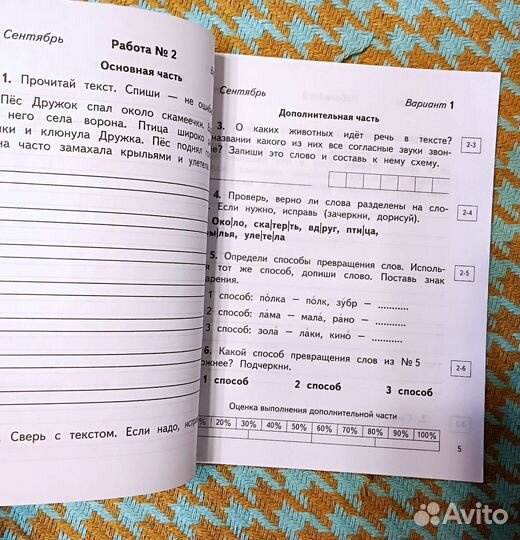 Сентябрь
Работа № 2
Основная часть
1. Прочитай текст. Спиши — не ошиб
Пёс Дружок спал около скамеечки.
него села ворона. Птица широко
ки и клюнула Дружка. Пёс поднял
на часто замахала крыльями и улетела
Сверь с текстом. Если надо, испр
Сентябрь
Вариант 1
Дополнительная часть
3. О каких животных идёт речь в тексте?
названии какого из них все согласные звуки звон-
Запиши это слово и составь к нему схему.
2-3
4. Проверь, верно ли слова разделены на сло-
Если нужно, исправь (зачеркни, дорисуй).
2-4
Око|ло, ска|терть, вд|руг, пти|ца,
лья, уле|тела
5. Определи способы превращения слов. Исполь-
тот же способ, допиши слово. Поставь знак
арения.
2-5
1 способ: по́лка — по́лк, зу́бр — ...........
2 способ: ла́ма — мала́, ра́но — ...........
3 способ: зола́ — ла́ки, кино́ — ...........
6. Какой способ превращения слов из № 5
ожнее? Подчеркни.
2-6
1 способ 2 способ 3 способ
Оценка выполнения дополнительной части
20% 30% 40% 50% 60% 70% 80% 90% 100%
5
Avito